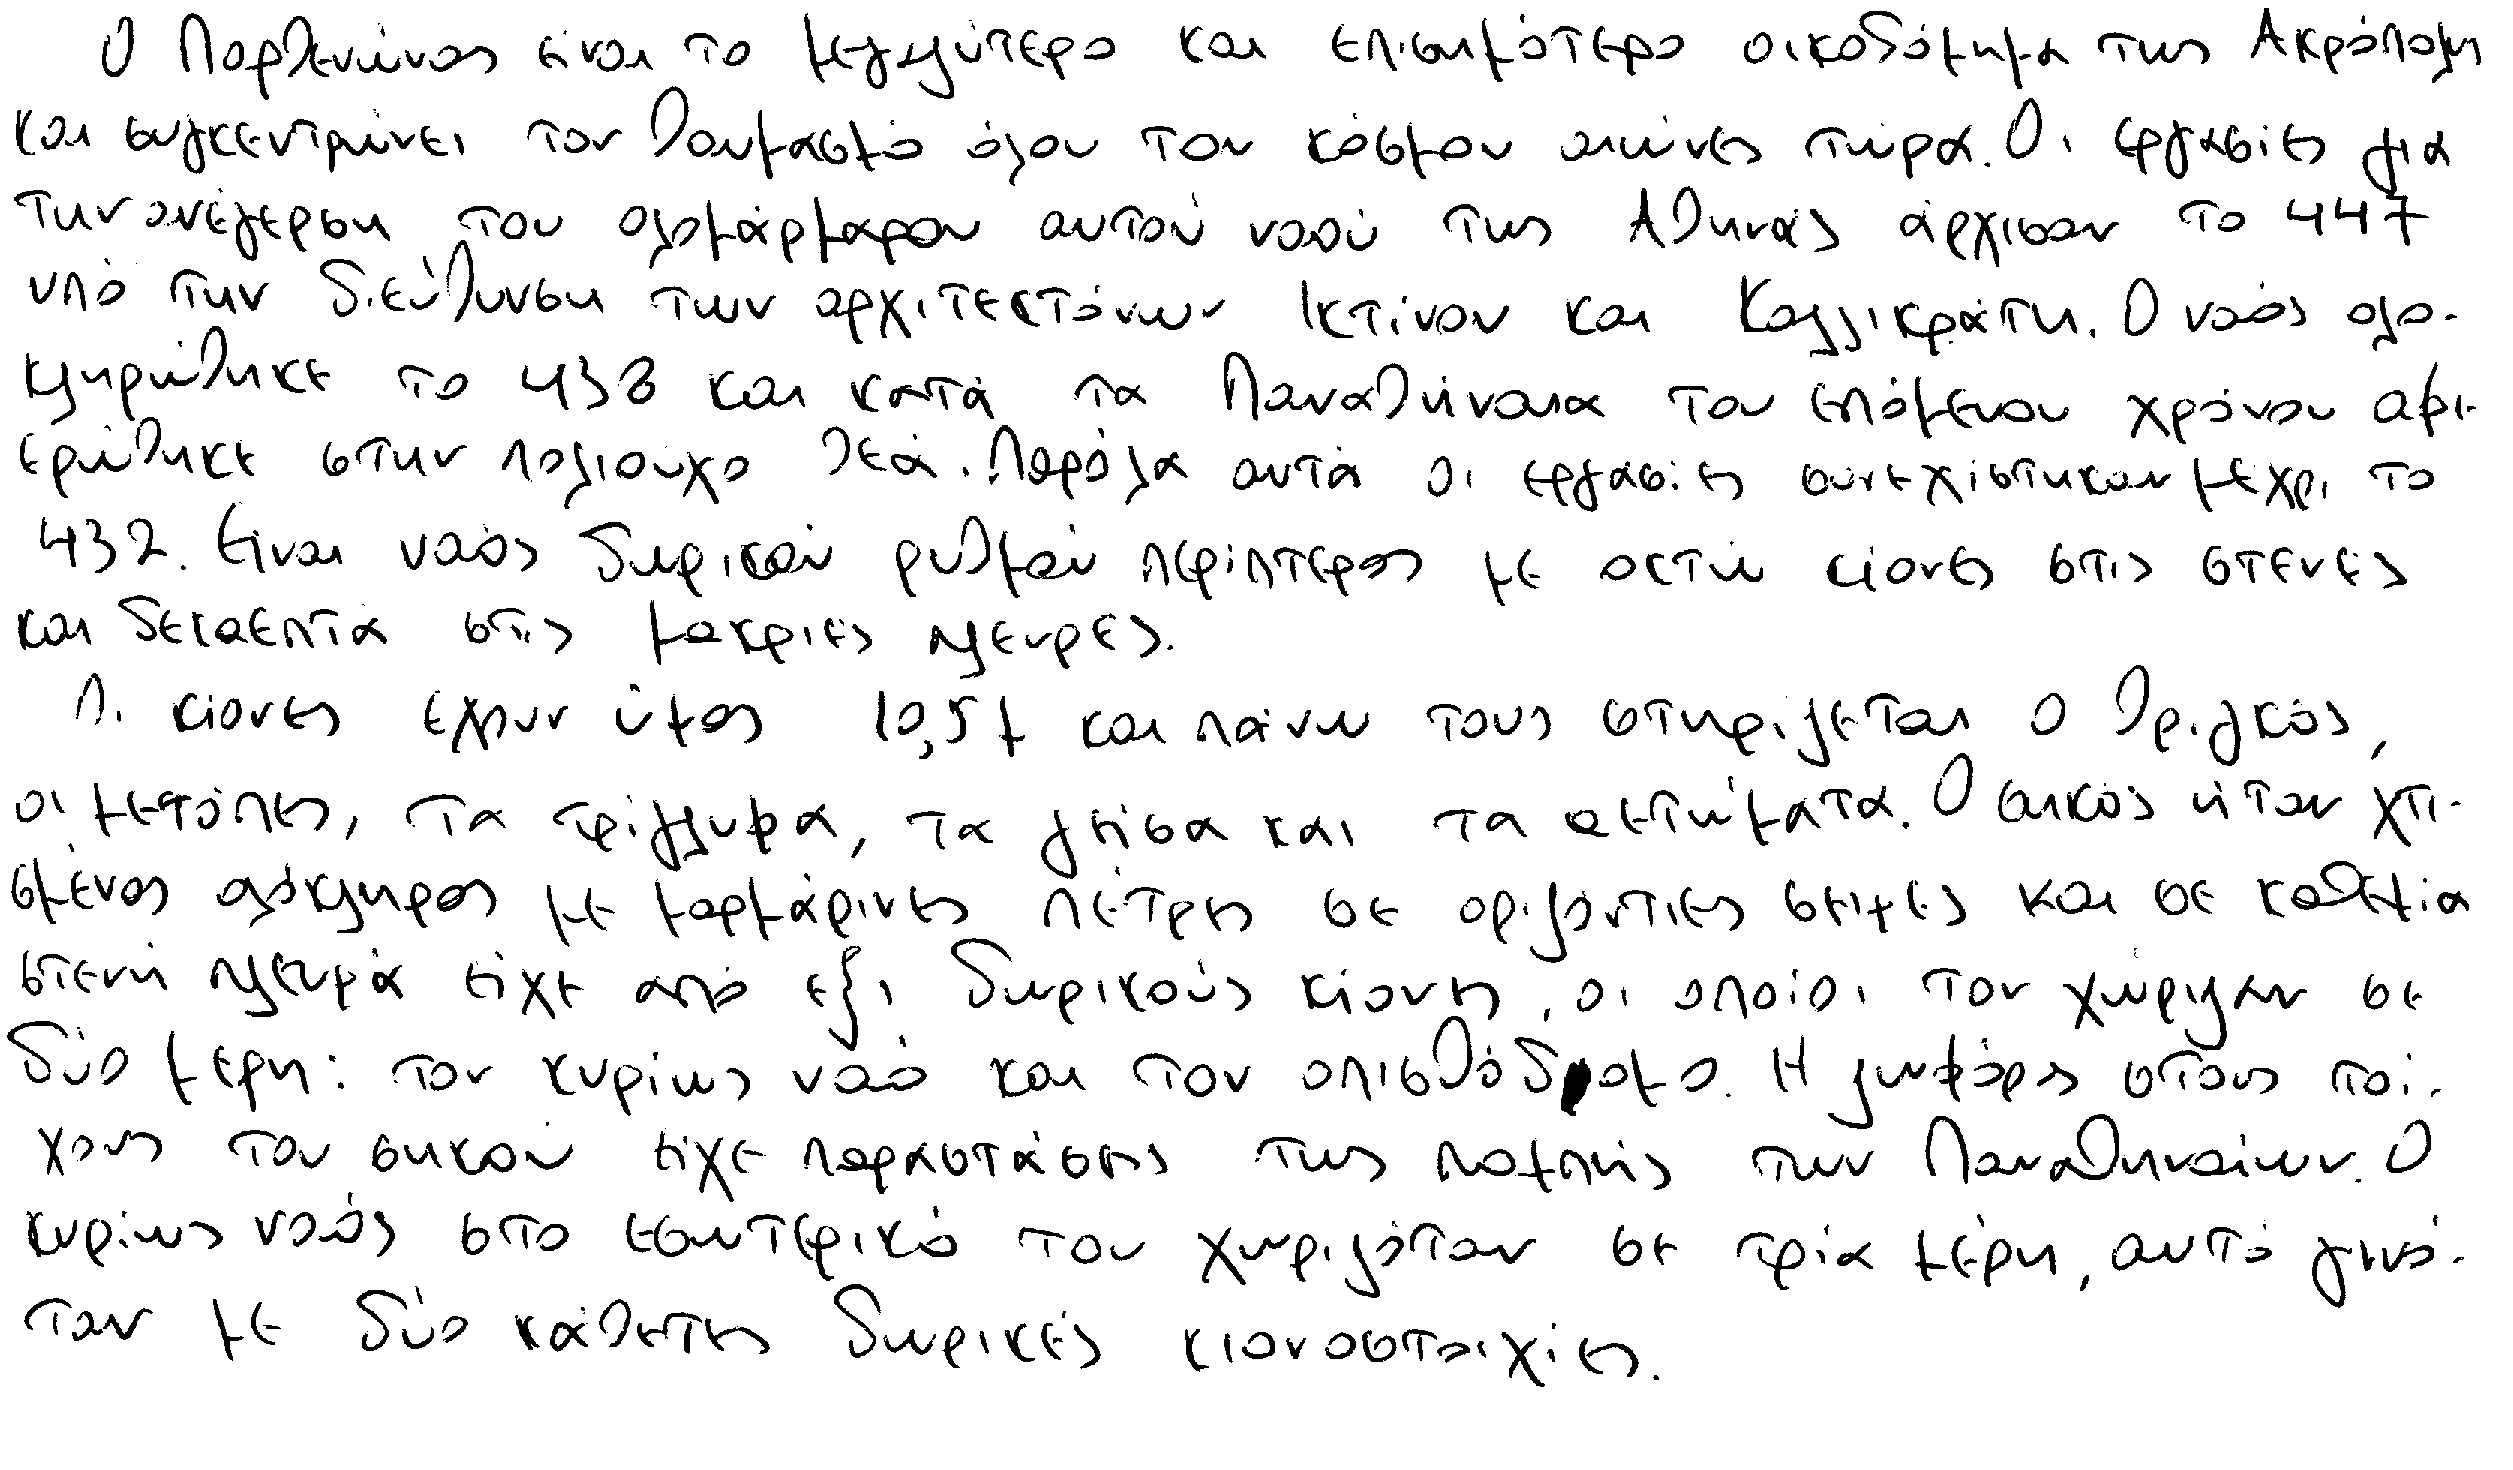 Ο Παρθενώνας είναι το μεγαλύτερο και επισημότερο οικοδόμημα της Ακρόπολη
και συγκεντρώνει τον θαυμασμό όλου του κόσμου αιώνες τώρα. Οι εργασίες για
την ανέγερση του ολομάρμαρου αυτού ναού της Αθηνάς άρχισαν το 447
υπό την διεύθυνση των αρχιτεκτόνων Ικτίνου και Καλλικράτη. Ο ναός ολο-
κληρώθηκε το 438 και κατά τα Παναθήναια του επόμενου χρόνου αφι-
ερώθηκε στην πολιούχο θεά. Παρόλα αυτά οι εργασίες συνεχίστηκαν μέχρι το
432. Είναι ναός δωρικού ρυθμού περίπτερος με οκτώ κίονες στις στενές
και δεκαεπτά στις μακριές πλευρές.
Οι κίονες έχουν ύψος 10,5μ και πάνω τους στηρίζεται ο θριγκός,
οι μετόπες, τα τρίγλυφα, τα γείσα και τα αετώματα. Ο σικός ήταν χτι-
σμένος ολόκληρος με μαρμάρινες πέτρες σε οριζόντιες σειρές και σε καθεμία
στενή πλευρά είχε από έξι δωρικούς κίονες, οι οποίοι τον χώριζαν σε
δύο μέρη: τον κυρίως ναό και τον οπισθόδρομο. Η ζωφόρος στους τοί-
χους του σηκού είχε παραστάσεις της πομπής των Παναθηναίων. Ο
κυρίως ναός στο εσωτερικό του χωριζόταν σε τρία μέρη, αυτό γινό-
ταν με δύο κάθετες δωρικές κιονοστοιχίες.